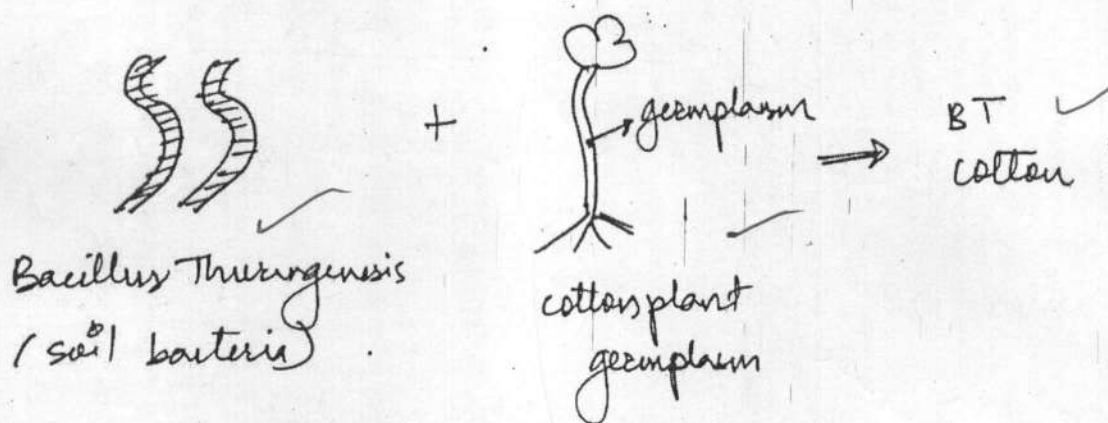 +
germplasm
⇒
BT
cotton
Bacillus Thuringenesis
(soil bacteria).
cotton plant
germplasm